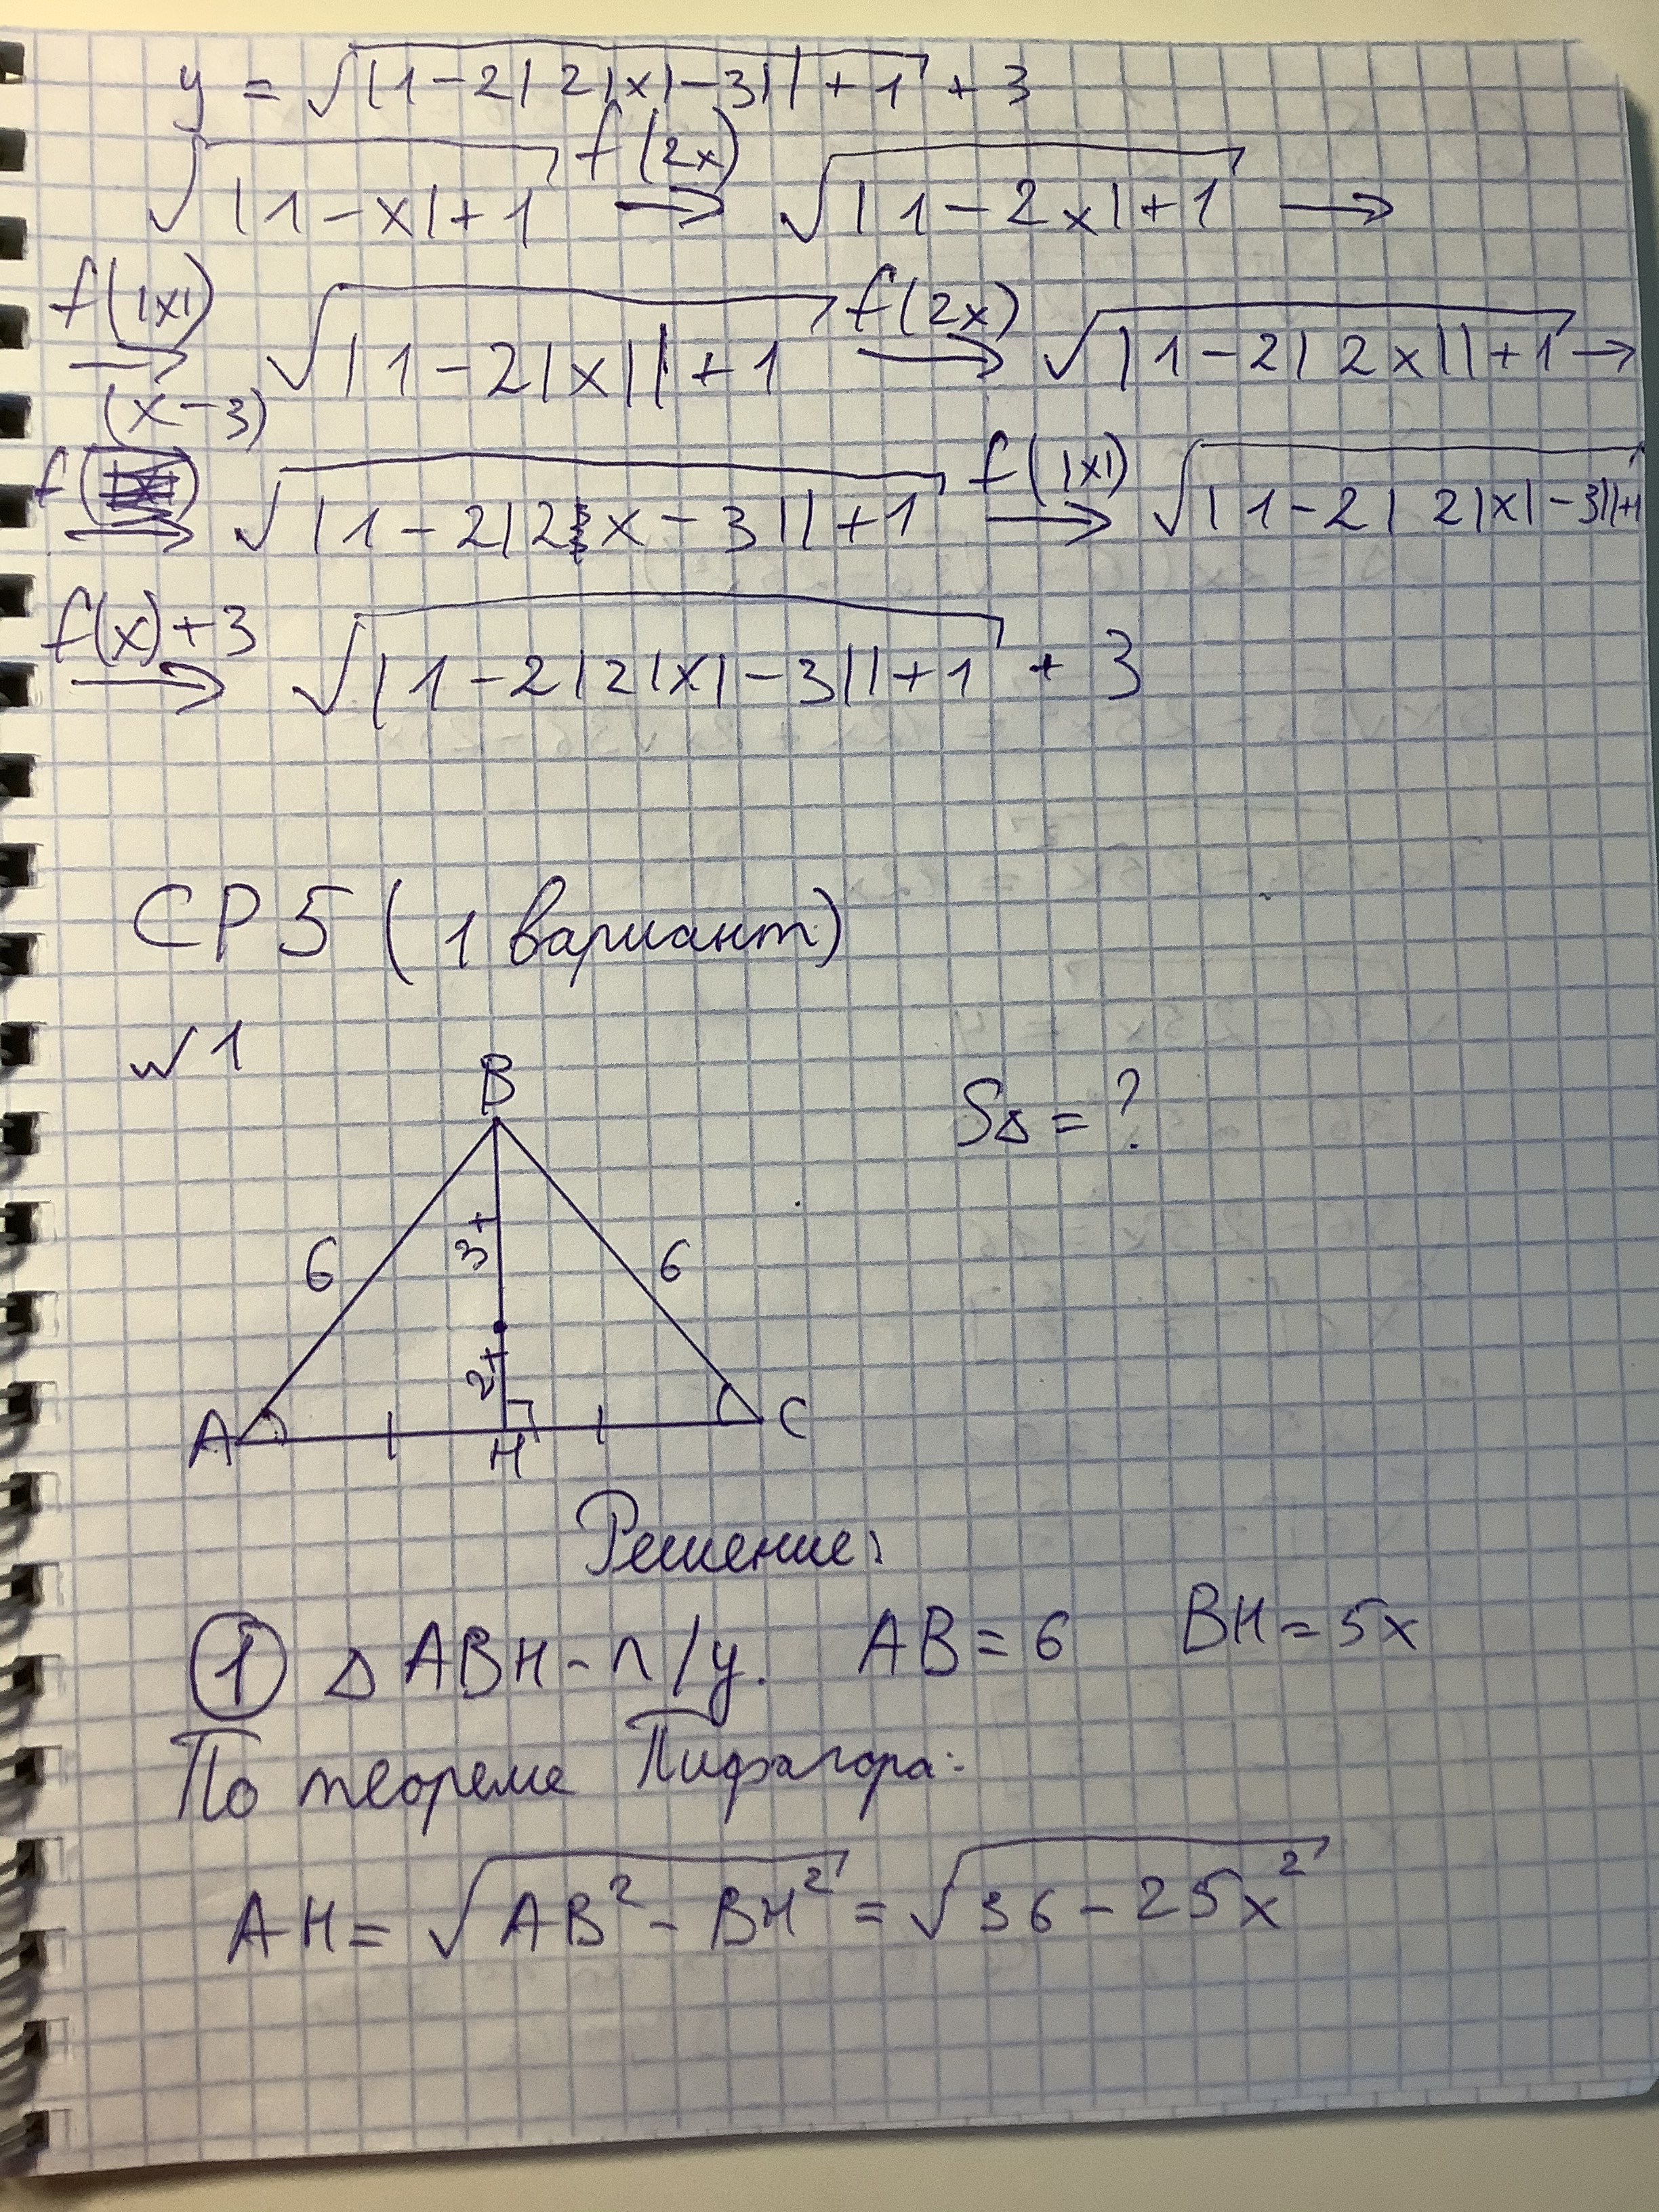 y = √(|1-2|2|x|-3||+1) + 3
√(|1-x|+1) f(2x) → √(|1-2x|+1) →
f(|x|) → √(|1-2|x||+1) f(2x) → √(|1-2|2x||+1) →
(x-3)
f( ) → √(|1-2|2x-3||+1) f(|x|) → √(|1-2|2|x|-3||+1)
f(x)+3 → √(|1-2|2|x|-3||+1) + 3
СР 5 (1 вариант)
№1
B
S△ = ?
3
6
6
2
A
H
C
Решение:
① △ABH - п/у. AB = 6 BH = 5x
По теореме Пифагора:
AH = √(AB² - BH²) = √(36 - 25x²)